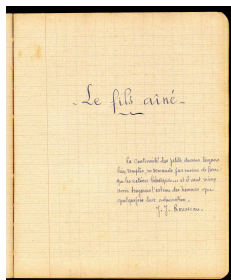 - Le fils aîné -
La continuité des petits devoirs toujours
bien remplis, ne demande pas moins de force
que les actions héroïques... et il vaut mieux
avoir toujours l'estime des hommes que
quelquefois leur admiration.
J. J. Rousseau.